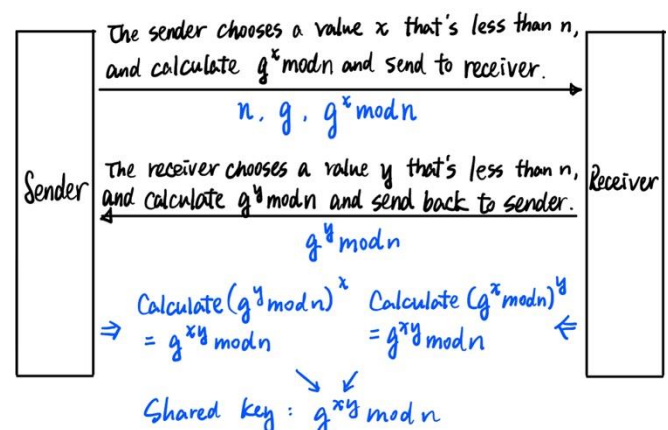 The sender chooses a value x that's less than n,
and calculate g^x mod n and send to receiver.
n, g, g^x mod n
Sender
The receiver chooses a value y that's less than n,
and calculate g^y mod n and send back to sender.
Receiver
g^y mod n
Calculate (g^y mod n)^x
= g^xy mod n
Calculate (g^x mod n)^y
= g^xy mod n
Shared key: g^xy mod n